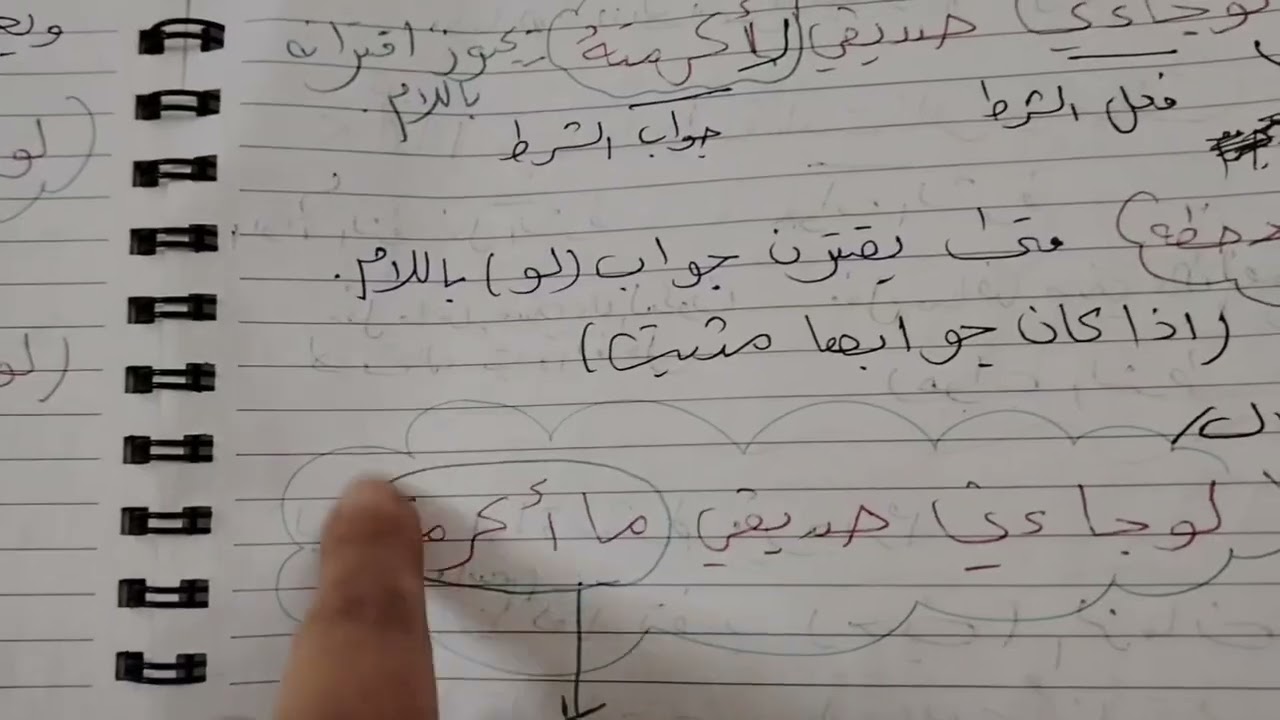 لو جاءني صديقي لأكرمته يجوز اقترانه
باللام.
فعل الشرط
جواب الشرط
متى يقترن جواب (لو) باللام.
(اذا كان جوابها مثبت)
لو جاءني صديقي ما أكرمـ